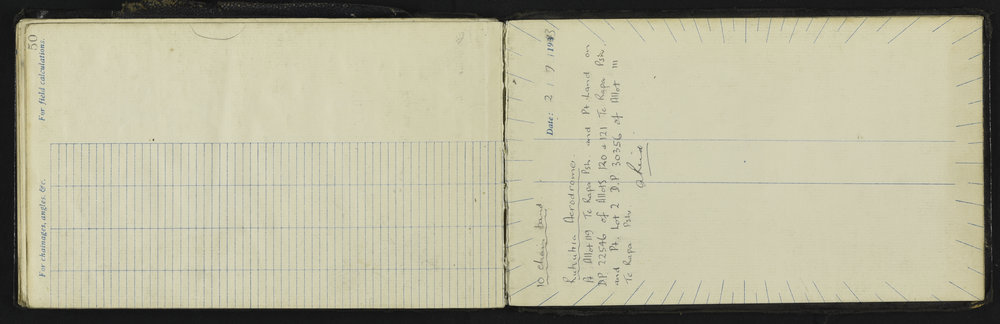 50
For chainages, angles, &c.
For field calculations.
10 chain band
Date: 2 / 9 / 1943
Rukuhia Aerodrome.
Pt Allot 119 Te Rapa Psh. and Pt Land on
D.P. 22546 of Allots 120 & 121 Te Rapa Psh.
and Pt. Lot 2 D.P. 30356 of Allot 111
Te Rapa Psh.